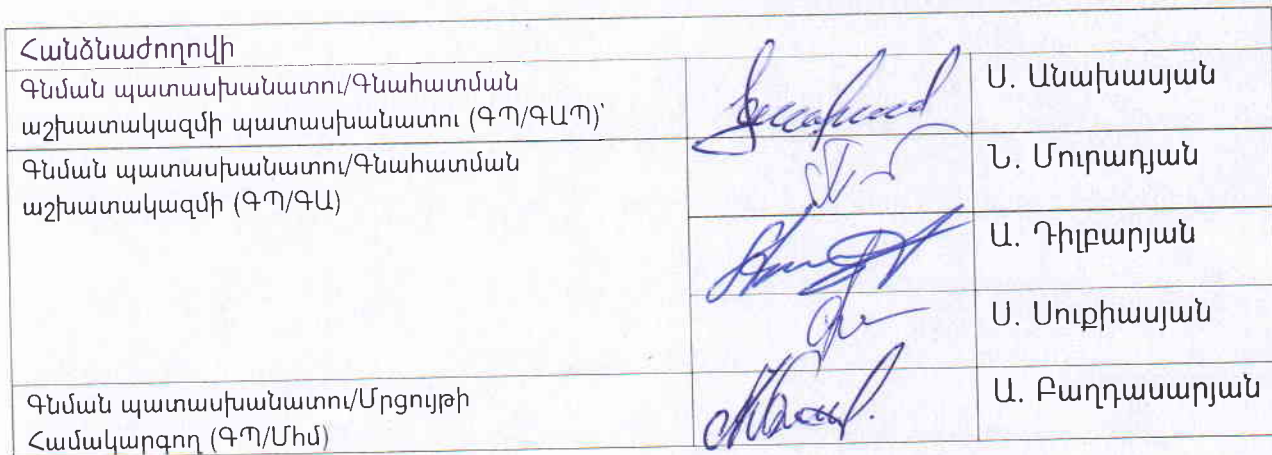 Հանձնաժողովի
Գնման պատասխանատու/Գնահատման
աշխատակազմի պատասխանատու (ԳՊ/ԳԱՊ)՝
Ս. Անախասյան
Գնման պատասխանատու/Գնահատման
աշխատակազմի (ԳՊ/ԳԱ)
Ն. Մուրադյան
Ա. Դիլբարյան
Ս. Սուքիասյան
Գնման պատասխանատու/Մրցույթի
Համակարգող (ԳՊ/Մհմ)
Ա. Բաղդասարյան